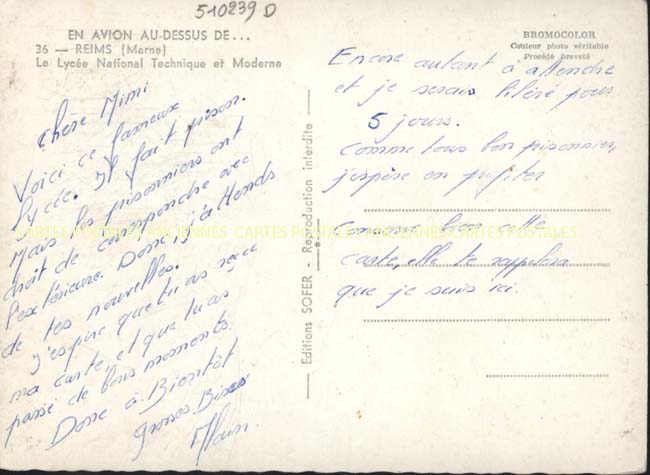 510239 D
EN AVION AU-DESSUS DE...
36 — REIMS (Marne)
Le Lycée National Technique et Moderne
BROMOCOLOR
Couleur photo véritable
Procédé breveté
Chère Mimi
Voici ce fameux
lycée. Il fait prison.
Mais les prisonniers ont
droit de correspondre avec
l'extérieur. Donc, j'attends
de tes nouvelles.
J'espère que tu as reçu
ma carte, et que tu as
passé de bons moments.
Donc à Bientôt
Grosses Bises
Alain.
Editions SOFER - Reproduction interdite
Encore autant à attendre
et je serais libéré pour
5 jours.
Comme tous bon prisonnier,
j'espère en profiter
Conserve bien cette
carte, elle te rappelera
que je suis ici.
CARTES POSTALES ANCIENNES CARTES POSTALES ANCIENNES CARTES POSTALES